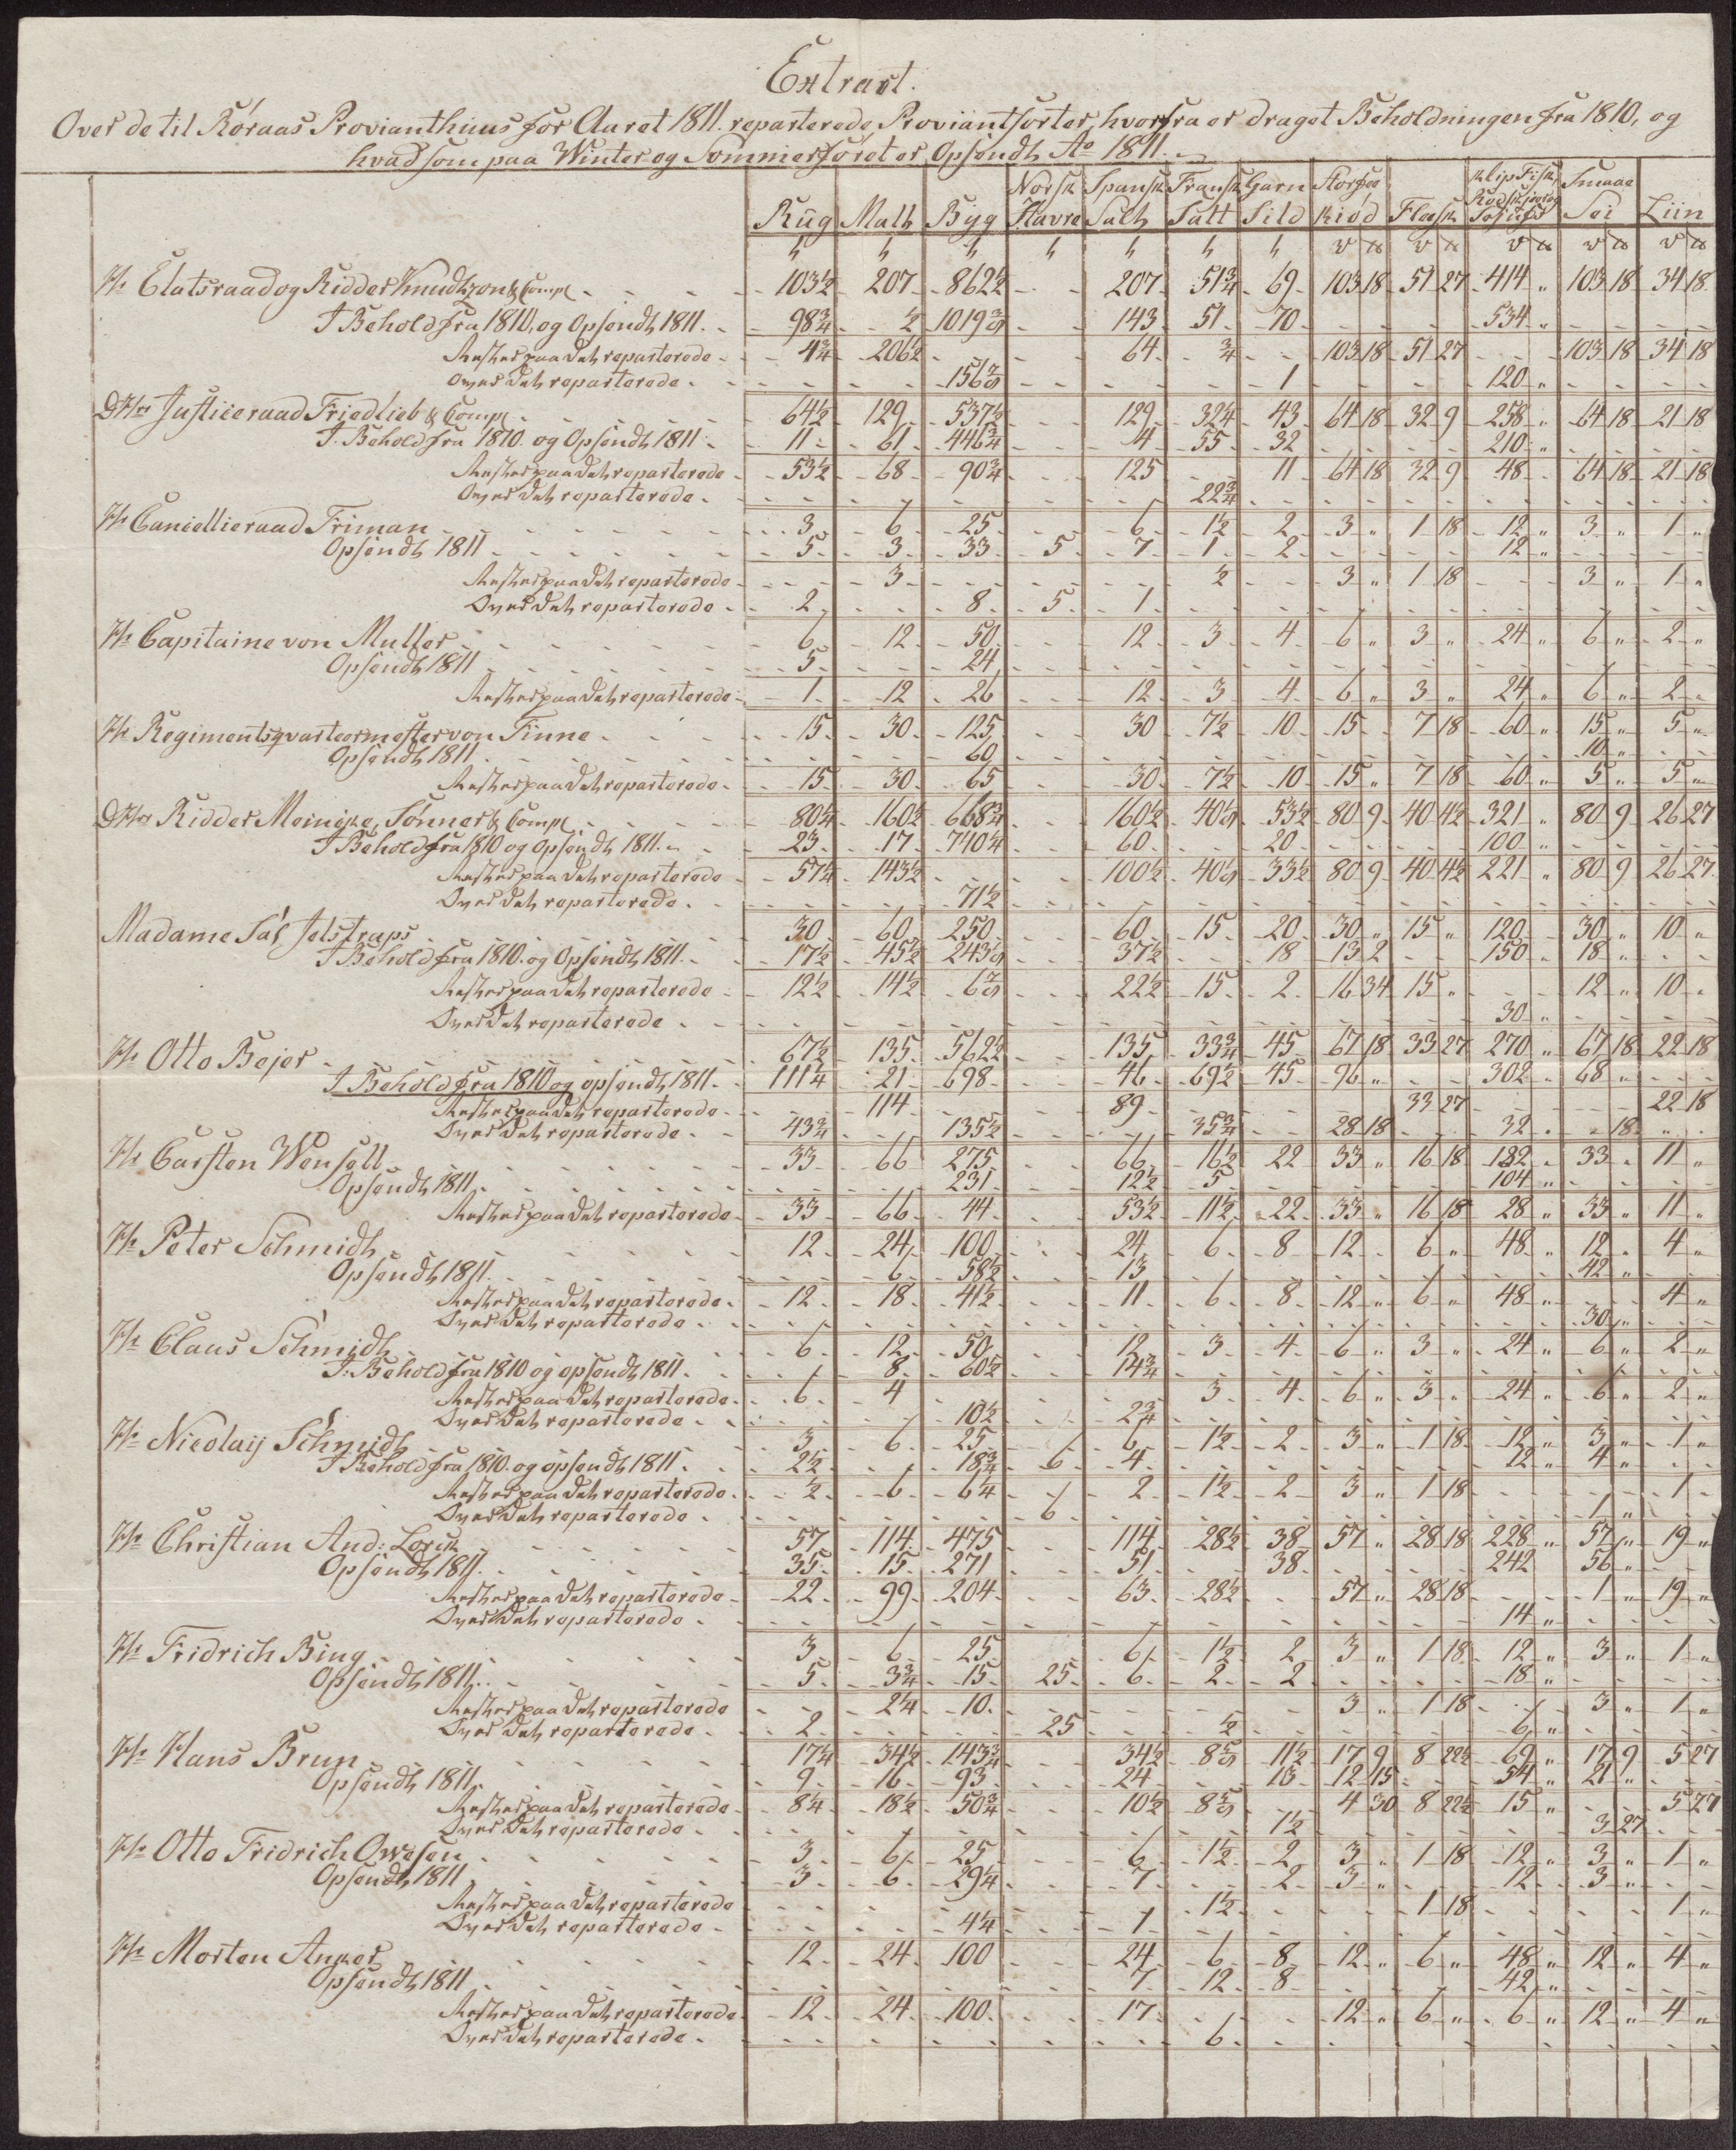 Extract.
Over de til Röraas Provianthuus for Aaret 1811. reparterede Proviantsorter, hvorfra er draget Beholdningen fra 1810, og
hvad som paa Winter og Sommerføret er Opsendt Ao 1811.
Rüg Malt Byg Norsk Havre Spansk Salt Fransk Salt Garn Sild Kiød Flæsk Klip Fisk, Smaae Sei Liin
Hr Etatsraad og Ridder Knudtzon & Comp 103½ 207 862½ 207 51¾ 69 103 18 51 27 414 " 103 18 34 18
I Behold fra 1810, og Opsendt 1811. 98¾ ½ 1019 143 51 70 534 "
Rester paa det reparterede 4¾ 206½ 64 ¾ 103 18 51 27 103 18 34 18
Over det reparterede 1 120 "
DHrr Justiceraad Friedlieb & Comp 64½ 129 537½ 129 32¼ 43 64 18 32 9 258 " 64 18 21 18
I Behold fra 1810. og Opsendt 1811. 11 61 446¾ 4 55 32 210 "
Rester paa det reparterede 53½ 68 90¾ 125 11 64 18 32 9 48 " 64 18 21 18
Over det reparterede 22¾
Hr Cancellieraad Friman 3 6 25 6 1½ 2 3 " 1 18 12 " 3 " 1 "
Opsendt 1811 5 3 33 5 7 1 2 12 "
Rester paa det reparterede 3 ½ 3 " 1 18 3 " 1 "
Over det reparterede 2 8 5 1
Hr Capitaine von Muller 6 12 50 12 3 4 6 " 3 " 24 " 6 " 2 "
Opsendt 1811 5 24
Rester paa det reparterede 1 12 26 12 3 4 6 " 3 " 24 " 6 " 2 "
Hr Regimentsqvarteermester von Finne 15 30 125 30 7½ 10 15 7 18 60 " 15 " 5 "
Opsendt 1811 60 10 "
Rester paa det reparterede 15 30 65 30 7½ 10 15 " 7 18 60 " 5 " 5 "
DHrr Ridder Meincke, Sønner & Comp 80¼ 160½ 668¾ 160½ 40⅛ 53½ 80 9 40 4½ 321 " 80 9 26 27
I Behold fra 1810 og Opsendt 1811. 23 17 740¼ 60 20 100 "
Rester paa det reparterede 57¼ 143½ 100½ 40⅛ 33½ 80 9 40 4½ 221 " 80 9 26 27
Over det reparterede 71½
Madame Sal. Jelstrups 30 60 250 60 15 20 30 " 15 " 120 30 " 10 "
I Behold fra 1810. og Opsendt 1811. 17½ 45½ 243 37½ 18 13 2 150 " 18 "
Rester paa det reparterede 12½ 14½ 6 22½ 15 2 16 34 15 " 12 " 10 "
Over det reparterede 30 "
Hr Otto Bejer 67½ 135 562½ 135 33¾ 45 67 18 33 27 270 " 67 18 22 18
I Behold fra 1810 og opsendt 1811. 111¼ 21 698 46 69½ 45 96 " 302 " 68 "
Rester paa det reparterede 114 89 33 27 22 18
Over det reparterede 43¾ 135½ 35¾ 28 18 32 " " 18
Hr Carsten Wensell 33 66 275 66 16½ 22 33 " 16 18 132 " 33 " 11 "
Opsendt 1811 231 12½ 5 104 "
Rester paa det reparterede 33 66 44 53½ 11½ 22 33 " 16 18 28 " 33 " 11 "
Hr Peter Schmidt 12 24 100 24 6 8 12 " 6 " 48 " 12 " 4 "
Opsendt 1811 6 58½ 13 42 "
Rester paa det reparterede 12 18 41½ 11 6 8 12 " 6 " 48 " 4 "
Over det reparterede 30 "
Hr Claus Schmidt 6 12 50 12 3 4 6 " 3 " 24 " 6 " 2 "
I Behold fra 1810 og opsendt 1811. 8 60½ 14¾
Rester paa det reparterede 6 4 3 4 6 " 3 " 24 " 6 " 2 "
Over det reparterede 10½ 2¾
Hr Nicolaij Schmidt 3 6 25 6 1½ 2 3 " 1 18 12 " 3 " 1 "
I Behold fra 1810. og opsendt 1811. 2½ 18¾ 6 4 12 " 4 "
Rester paa det reparterede ½ 6 6¼ 2 1½ 2 3 " 1 18 1 "
Over det reparterede 6 1 "
Hr Christian And: Lorck 57 114 475 114 28½ 38 57 " 28 18 228 " 57 " 19 "
Opsendt 1811. 35 15 271 51 38 242 56 "
Rester paa det reparterede 22 99 204 63 28½ 57 " 28 18 1 " 19 "
Over det reparterede 14 "
Hr Fridrich Bing 3 6 25 6 1½ 2 3 " 1 18 12 " 3 " 1 "
Opsendt 1811. 5 3¾ 15 25 6 2 2 18 "
Rester paa det reparterede 2¼ 10 3 " 1 18 3 " 1 "
Over det reparterede 2 25 ½ 6 "
Hr Hans Brun 17¼ 34½ 143¾ 34½ 8⅝ 11½ 17 9 8 22½ 69 " 17 9 5 27
Opsendt 1811 9 16 93 24 13 12 15 54 " 21 "
Rester paa det reparterede 8¼ 18½ 50¾ 10½ 8⅝ 4 30 8 22½ 15 " 5 27
Over det reparterede 1½ 3 27
Hr Otto Fridrich Owesen 3 6 25 6 1½ 2 3 " 1 18 12 " 3 " 1 "
Opsendt 1811 3 6 29¼ 7 2 3 " 12 " 3 "
Rester paa det reparterede 1½ 1 18 1 "
Over det reparterede 4¼ 1
Hr Morten Anker 12 24 100 24 6 8 12 " 6 " 48 " 12 " 4 "
Opsendt 1811 7 12 8 42 "
Rester paa det reparterede 12 24 100 17 12 " 6 " 6 " 12 " 4 "
Over det reparterede 6